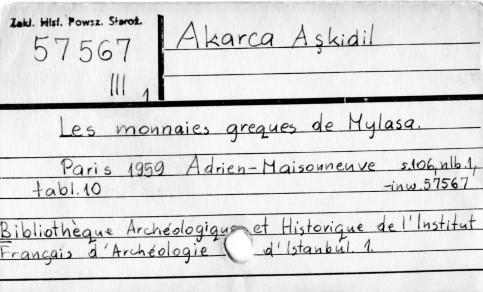 Zakl. Hist. Powsz. Staroż.
57567
III 1
Akarca Aşkidil
Les monnaies greques de Mylasa.
Paris 1959 Adrien-Maisonneuve s.106, nlb.1,
tabl.10 -inw.57567
Bibliothèque Archéologique et Historique de l'Institut
Français d'Archéologie d'Istanbul. 1.